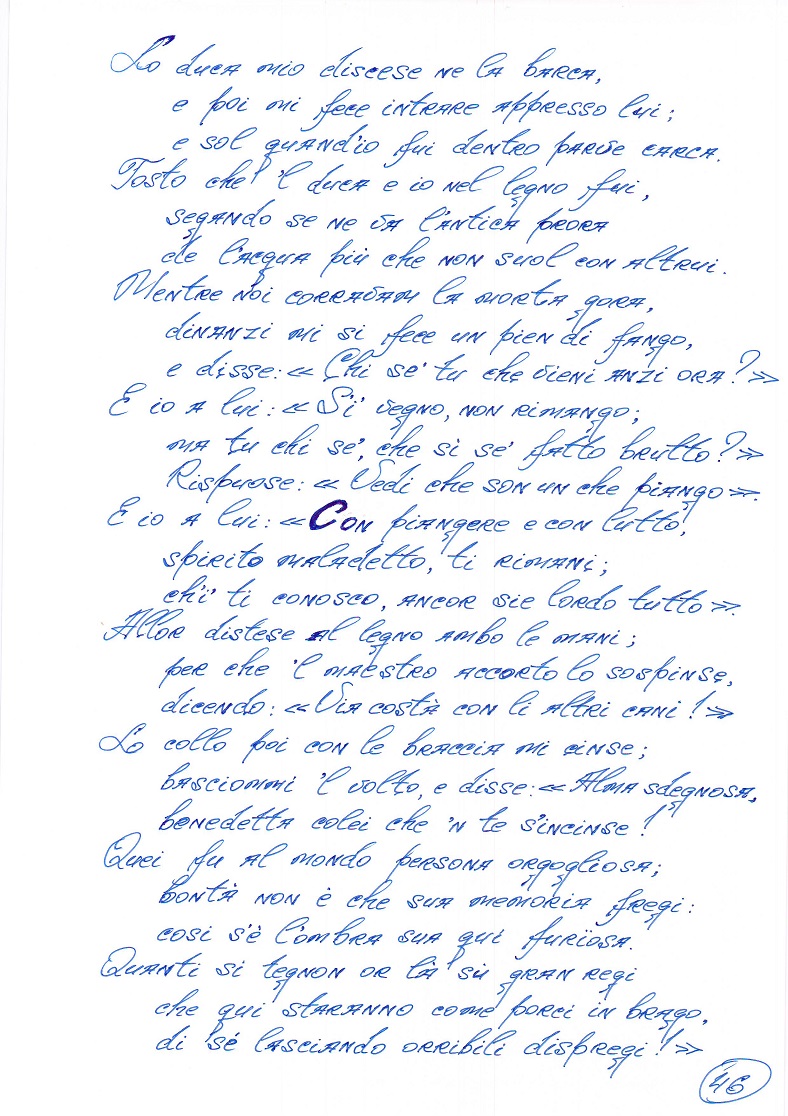 Lo duca mio discese ne la barca,
e poi mi fece intrare appresso lui;
e sol quand'io fui dentro parve carca.
Tosto che 'l duca e io nel legno fui,
segando se ne va l'antica prora
de l'acqua più che non suol con altrui.
Mentre noi corravam la morta gora,
dinanzi mi si fece un pien di fango,
e disse: «Chi se' tu che vieni anzi ora?»
E io a lui: «S'i' vegno, non rimango;
ma tu chi se', che sì se' fatto brutto?»
Rispuose: «Vedi che son un che piango».
E io a lui: «Con piangere e con lutto,
spirito maladetto, ti rimani;
ch'i' ti conosco, ancor sie lordo tutto».
Allor distese al legno ambo le mani;
per che 'l maestro accorto lo sospinse,
dicendo: «Via costà con li altri cani!»
Lo collo poi con le braccia mi cinse;
basciommi 'l volto, e disse: «Alma sdegnosa,
benedetta colei che 'n te s'incinse!
Quei fu al mondo persona orgogliosa;
bontà non è che sua memoria fregi:
così s'è l'ombra sua qui furïosa.
Quanti si tegnon or là sù gran regi
che qui staranno come porci in brago,
di sé lasciando orribili dispregi!»
46